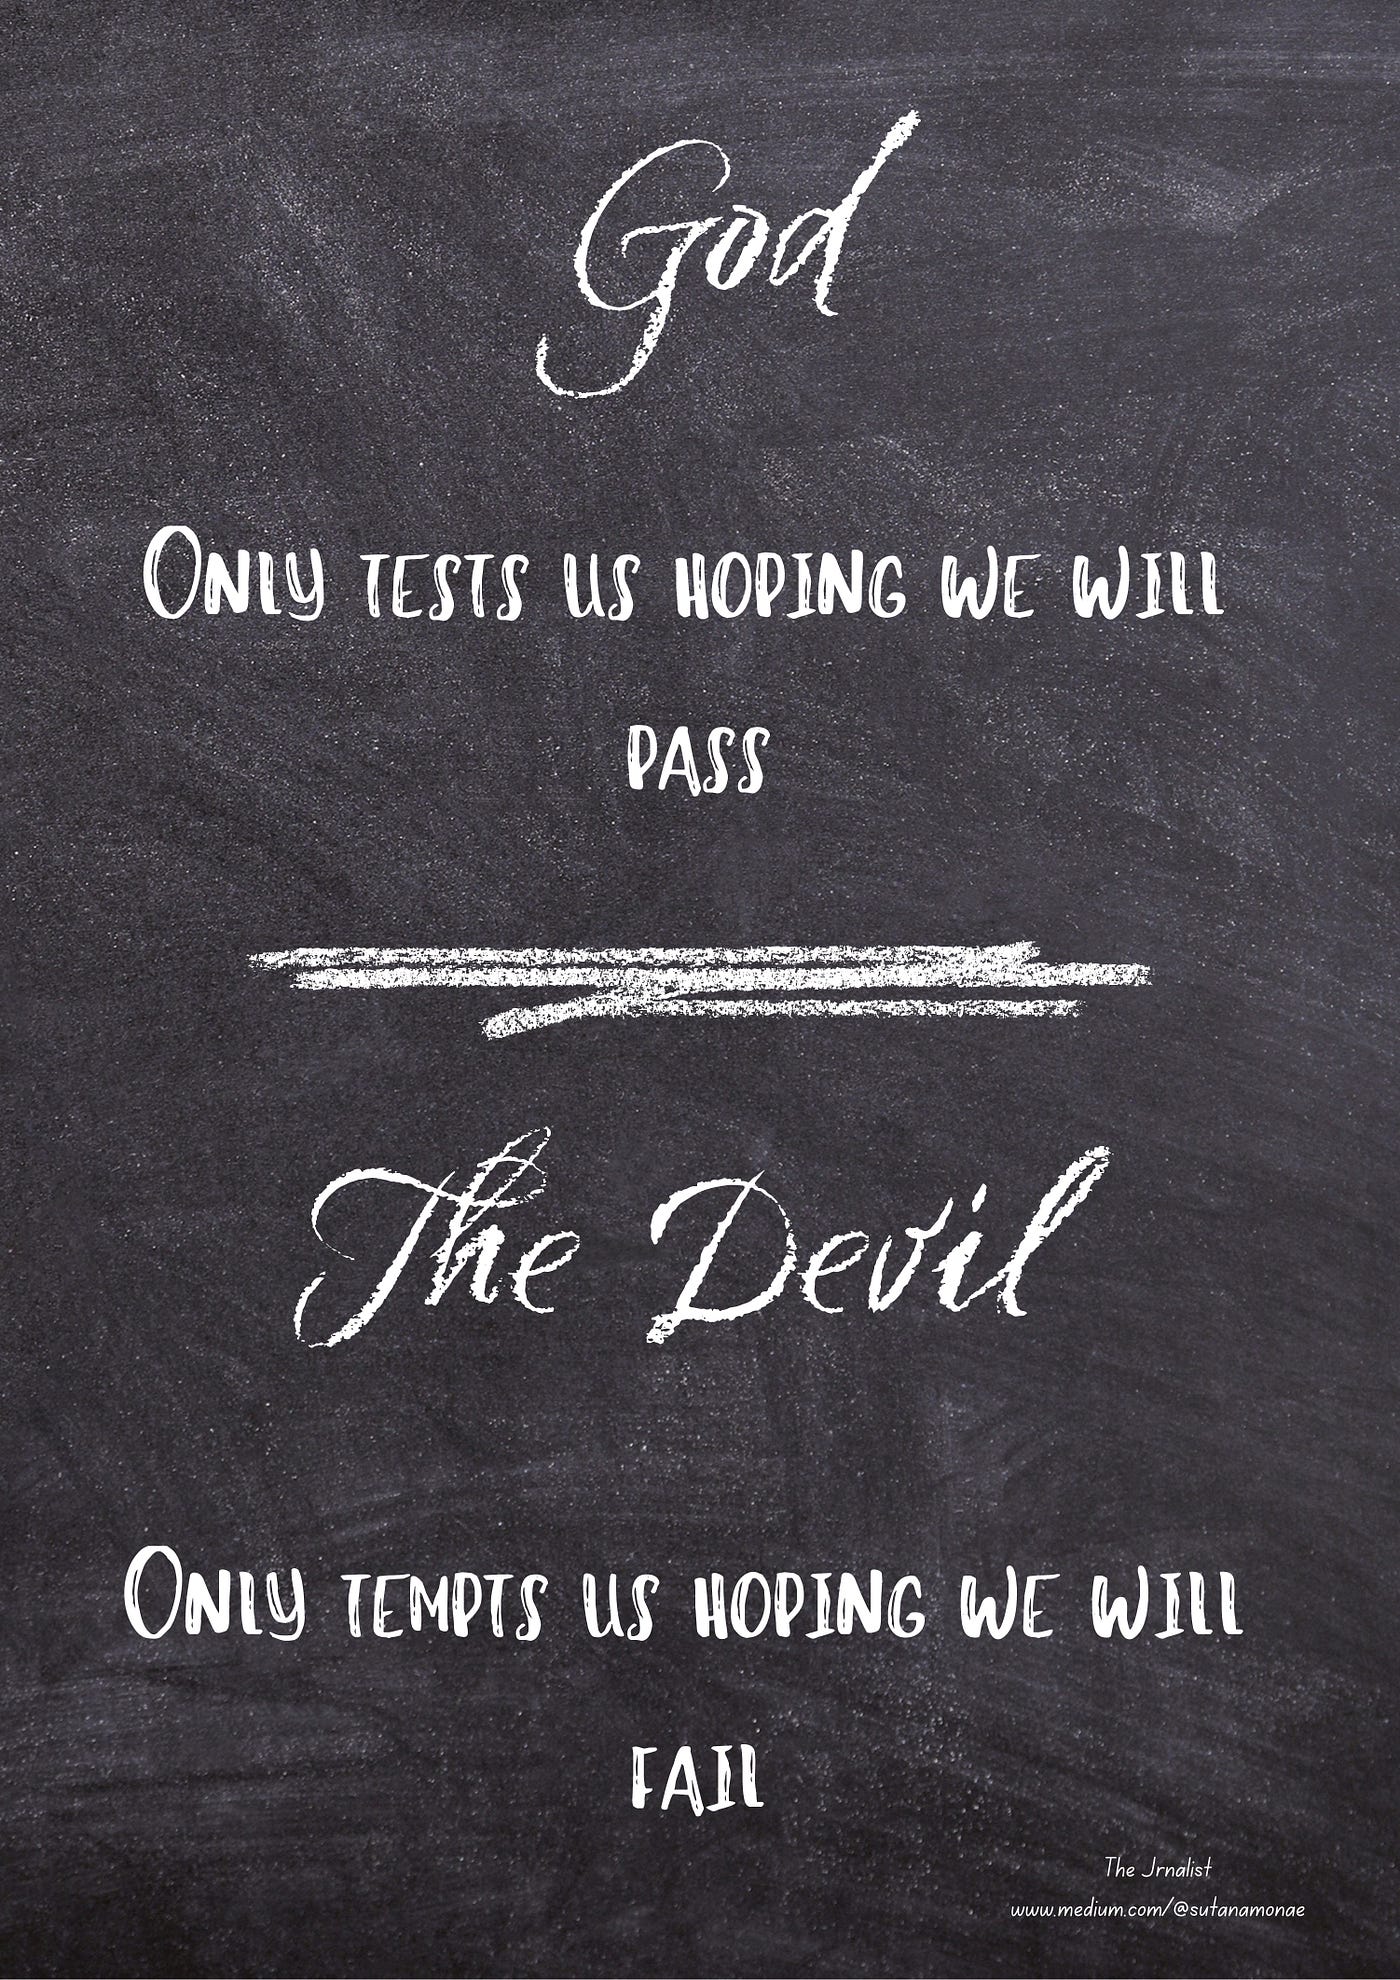 God
Only tests us hoping we will
pass
The Devil
Only tempts us hoping we will
fail
The Jrnalist
www.medium.com/@sutanamonae